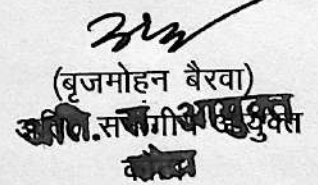 (बृजमोहन बैरवा)
अति. संभागीय आयुक्त
कोटा